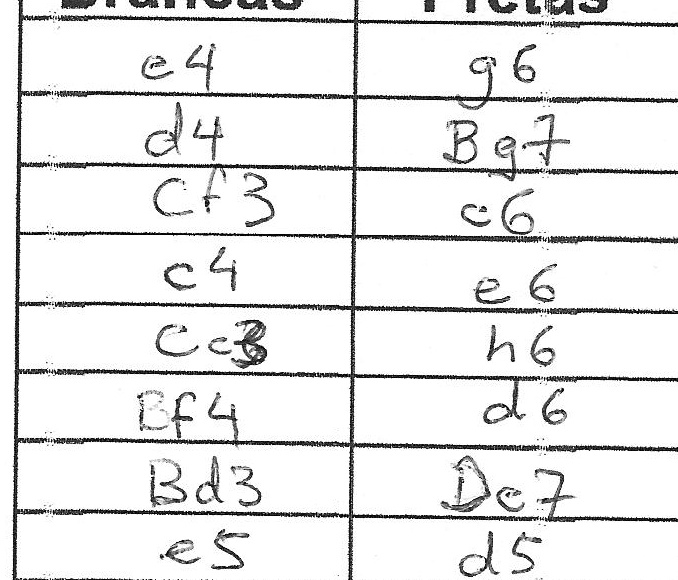 Brancas Pretas
e4 g6
d4 Bg7
Cf3 c6
c4 e6
Cc3 h6
Bf4 d6
Bd3 Dc7
e5 d5